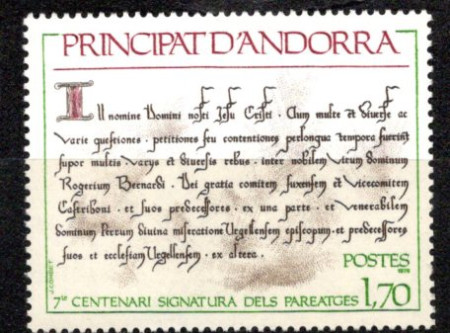 PRINCIPAT D'ANDORRA
In nomine Domini nostri Jesu Cristi . Cum multe et diverse ac
varie questiones . petitiones seu contentiones perlongua tempora fuerint
super multis varys et diversis rebus . inter nobilem virum dominum
Rogerium Bernardi . Dei gratia comitem fuxensem et vicecomitem
Castriboni . et suos predecessores . ex una parte . et venerabilem
dominum Petrum divina miseratione Urgellensem episcopum et predecessores
suos et ecclesiam Urgellensem . ex altera .
POSTES
7e CENTENARI SIGNATURA DELS PAREATGES 1,70